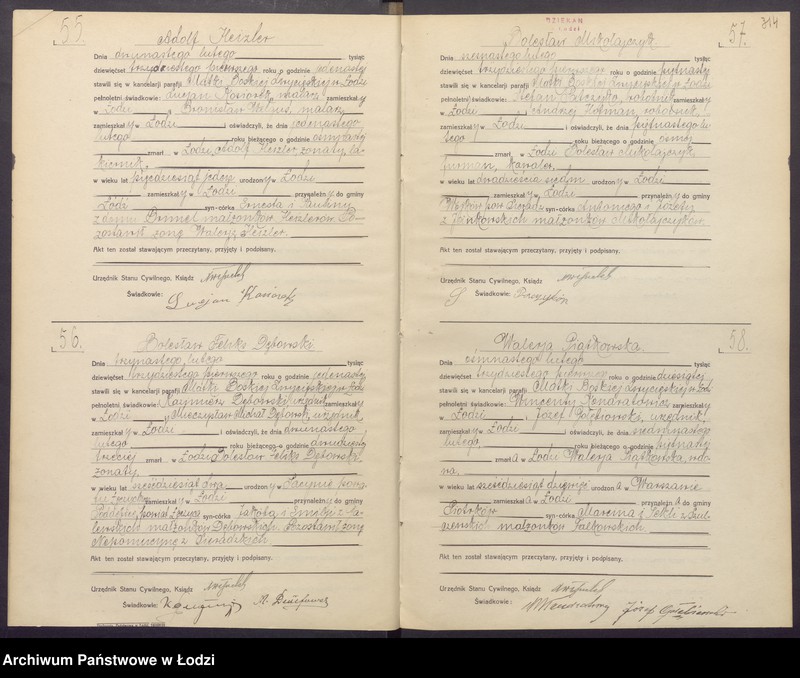 55.
Adolf Heizler
Dnia dwunastego lutego tysiąc
dziewięćset trzydziestego pierwszego roku o godzinie jedenastej
stawili się w kancelarji parafji Matki Boskiej Zwycięskiej w Łodzi
pełnoletni świadkowie: Lucjan Kosiorek, malarz zamieszkały
w Łodzi i Bronisław malarz,
zamieszkały w Łodzi i oświadczyli, że dnia jedenastego
lutego roku bieżącego o godzinie ósmej
zmarł w Łodzi Adolf Heizler żonaty,
w wieku lat pięćdziesiąt jeden urodzony w Łodzi
zamieszkały w Łodzi przynależny do gminy
Łódź syn-córka Ernesta i Pauliny
z domu małżonków Heizlerów. Po-
zostawił żonę Walerję Heizler.
Akt ten został stawającym przeczytany, przyjęty i podpisany.
Urzędnik Stanu Cywilnego, Ksiądz
Świadkowie: Lucjan Kosiorek
56.
Bolesław Feliks Dębowski
Dnia trzynastego lutego tysiąc
dziewięćset trzydziestego pierwszego roku o godzinie jedenastej
stawili się w kancelarji parafji Matki Boskiej Zwycięskiej w Łodzi
pełnoletni świadkowie: Kazimierz Dębowski, urzędnik zamieszkały
w Łodzi i Mieczysław Michał Dębowski, urzędnik,
zamieszkały w Łodzi i oświadczyli, że dnia dwunastego
lutego roku bieżącego o godzinie dwudziestej
trzeciej zmarł w Łodzi Bolesław Feliks Dębowski
żonaty,
w wieku lat sześćdziesiąt dwa urodzony w
zamieszkały w Łodzi przynależny do gminy
syn-córka Jakóba i Emilji z
małżonków Dębowskich. Pozostawił żonę
Nepomucynę z Sieradzkich.
Akt ten został stawającym przeczytany, przyjęty i podpisany.
Urzędnik Stanu Cywilnego, Ksiądz
Świadkowie:
DZIEKAN
Łódzki
57.
314
Bolesław Mikołajczyk
Dnia szesnastego lutego tysiąc
dziewięćset trzydziestego pierwszego roku o godzinie piętnastej
stawili się w kancelarji parafji Matki Boskiej Zwycięskiej w Łodzi
pełnoletni świadkowie: Stefan robotnik zamieszkały
w Łodzi i Ignacy Hofman, robotnik,
zamieszkały w Łodzi i oświadczyli, że dnia piętnastego lu-
tego roku bieżącego o godzinie ósmej
zmarł w Łodzi Bolesław Mikołajczyk,
furman, kawaler,
w wieku lat dwadzieścia siedm urodzony w Łodzi
zamieszkały w Łodzi przynależny do gminy
syn-córka Antoniego i Józefy
z małżonków Mikołajczyków.
Akt ten został stawającym przeczytany, przyjęty i podpisany.
Urzędnik Stanu Cywilnego, Ksiądz
Świadkowie:
58.
Walerja Piątkowska
Dnia ośmnastego lutego tysiąc
dziewięćset trzydziestego pierwszego roku o godzinie dziesiątej
stawili się w kancelarji parafji Matki Boskiej Zwycięskiej w Łodzi
pełnoletni świadkowie: Wincenty Kondratowicz zamieszkały
w Łodzi i Józef urzędnik,
zamieszkały w Łodzi i oświadczyli, że dnia siedmnastego
lutego, roku bieżącego o godzinie piętnastej
zmarła w Łodzi Walerja Piątkowska, wdo-
wa,
w wieku lat sześćdziesiąt urodzona w Warszawie
zamieszkała w Łodzi przynależna do gminy
Piotrków syn-córka Marcina i Tekli z
małżonków
Akt ten został stawającym przeczytany, przyjęty i podpisany.
Urzędnik Stanu Cywilnego, Ksiądz
Świadkowie: Józef
Archiwum Państwowe w Łodzi